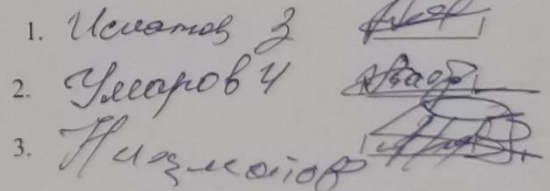 1. Исматов З
2. Умаров Ч
3. Низматов